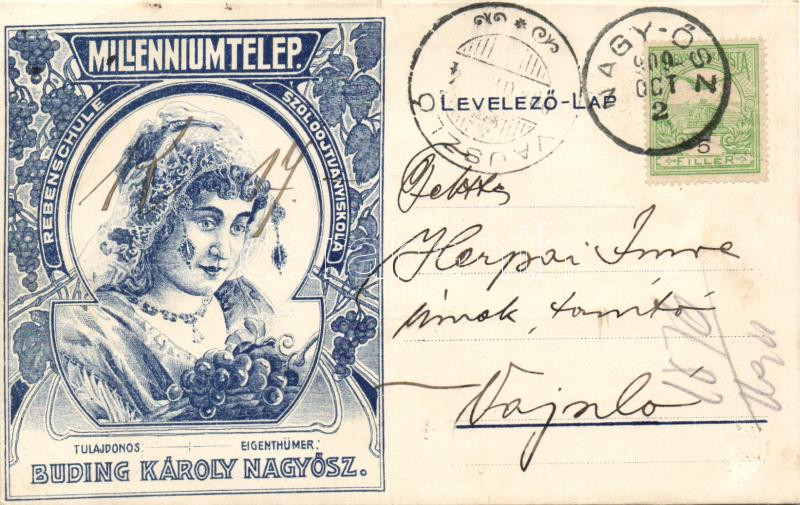 MILLENNIUMTELEP.
REBENSCHULE
SZŐLŐOJTVÁNYISKOLA
TULAJDONOS: EIGENTHÜMER:
BUDING KÁROLY NAGYŐSZ.
LEVELEZŐ-LAP
VAJSZLÓ
NAGY-ŐSZ
909
OCT
2
5
FILLÉR
Herpai Imre
úrnak, tanító
Vajszló